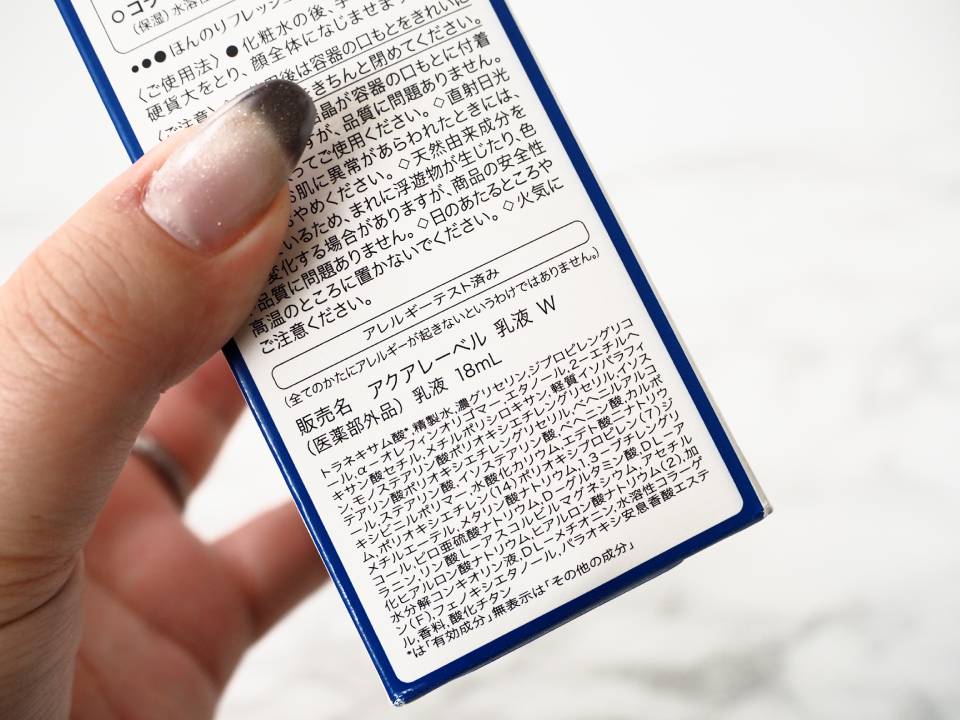 ○コラ
(保湿)水溶性
●●●ほんのりフレッシ
〈ご使用法〉●化粧水の後、手
硬貨大をとり、顔全体になじませま
〈ご注意〉 用後は容器の口もとをきれいに
きちんと閉めてください。
晶が容器の口もとに付着
すが、品質に問題ありません。
ってご使用ください。◇直射日光
お肌に異常があらわれたときには、
おやめください。◇天然由来成分を
いるため、まれに浮遊物が生じたり、色
変化する場合がありますが、商品の安全性
品質に問題ありません。◇日のあたるところや
高温のところに置かないでください。◇火気に
ご注意ください。
アレルギーテスト済み
(全てのかたにアレルギーが起きないというわけではありません。)
販売名 アクアレーベル 乳液 W
(医薬部外品) 乳液 18mL
トラネキサム酸*,精製水,濃グリセリン,ジプロピレングリコ
ール,α-オレフィンオリゴマー,エタノール,2-エチルヘ
キサン酸セチル,メチルポリシロキサン,軽質イソパラフィ
ン,モノステアリン酸ポリオキシエチレングリセリル,イソス
テアリン酸,ステアリン酸,バチルアルコール,ベヘニルアルコ
ール,ステアリン酸,ベヘニン酸,カルボ
キシビニルポリマー,水酸化カリウム,エデト酸ナトリウ
ム,ポリオキシエチレン(14)ポリオキシプロピレン(7)ジ
メチルエーテル,メタリン酸ナトリウム,1,3-ブチレングリ
コール,ピロ亜硫酸ナトリウム,D-グルタミン酸,DL-ア
ラニン,リン酸L-アスコルビルマグネシウム,アセチル
化ヒアルロン酸ナトリウム,ヒアルロン酸ナトリウム(2),加
水分解コンキオリン液,DL-メチオニン,水溶性コラーゲ
ン(F),フェノキシエタノール,パラオキシ安息香酸エステ
ル,香料,酸化チタン
*は「有効成分」無表示は「その他の成分」